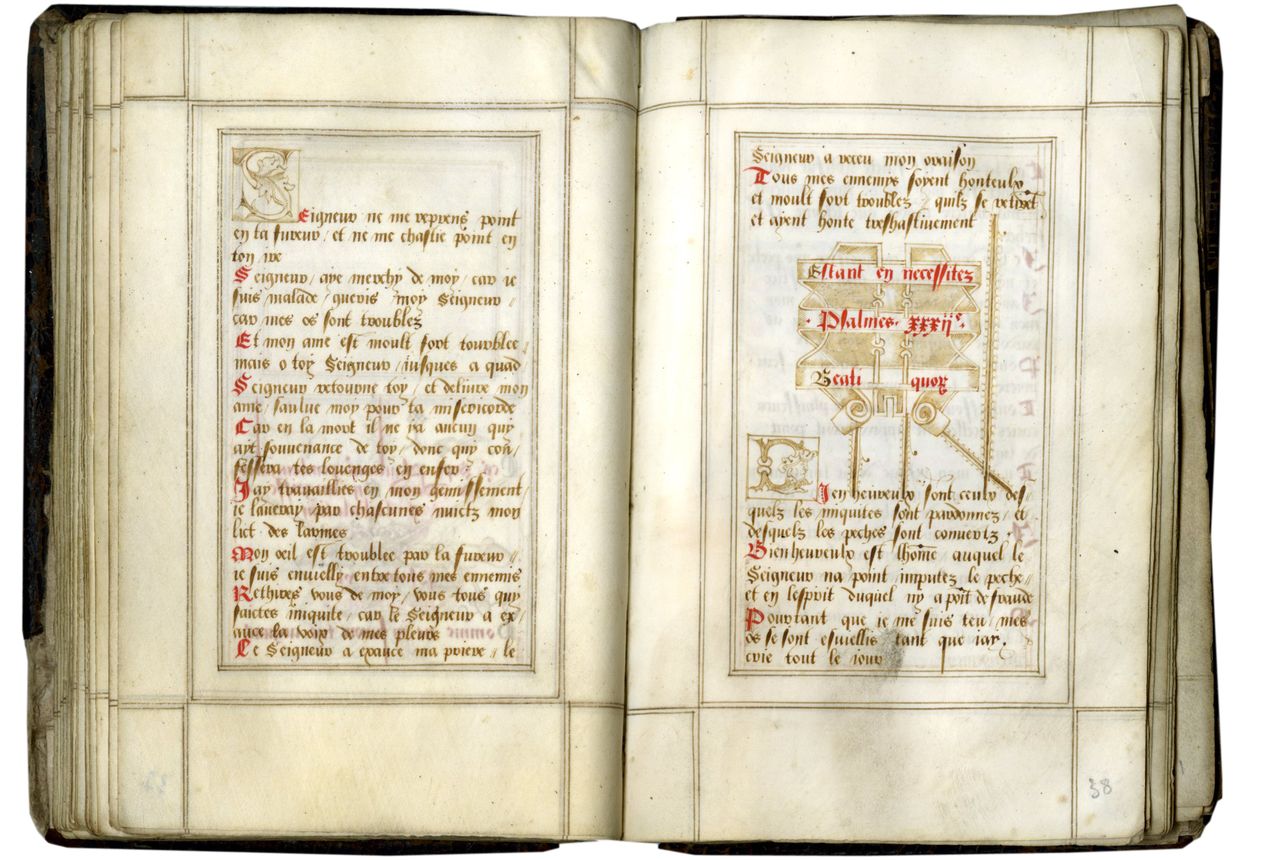 Seigneur ne me reprens point
en ta fureur / et ne me chastie point en
ton ire
Seigneur / aye merchy de moy / car ie
suis malade / gueris moy Seigneur //
car mes os sont troublez
Et mon ame est moult fort tourblee /
mais o toy Seigneur / iusques a quãd
Seigneur retourne toy / et delivre mon
ame / saulue moy pour ta misericorde
Car en la mort il ne ya aucun quy
ayt souvenance de toy / donc quy con /
fessera tes louenges en enfer
Jay travaillies en mon gemissement /
ie laveray par chascunes nuictz mon
lict des larmes
Mon oeil est troublee par la fureur //
ie suis envielly entre tous mes ennemis
Rethires vous de moy / vous tous quy
faictes iniquite / car le Seigneur a ex /
auce la voix de mes pleurs
Le Seigneur a exauce ma priere // le
Seigneur a receu mon oraison
Tous mes ennemys soyent honteulx
et moult fort troublez / quilz se retirẽt
et ayent honte treshastivement
Estant en necessitez
· Psalmes · xxxij e ·
Beati quorz
Bien heureulx sont ceulx des /
quelz les iniquites sont pardonnez / et
desquelz les peches sont couuertz ·
Bien heureulx est lhom̃e auquel le
Seigneur na point imputez le peche //
et en lesprit duquel ny a poĩt de fraude
Pourtant que ie me suis teu / mes
os se sont esviellis tant que iay /
crie tout le iour
38